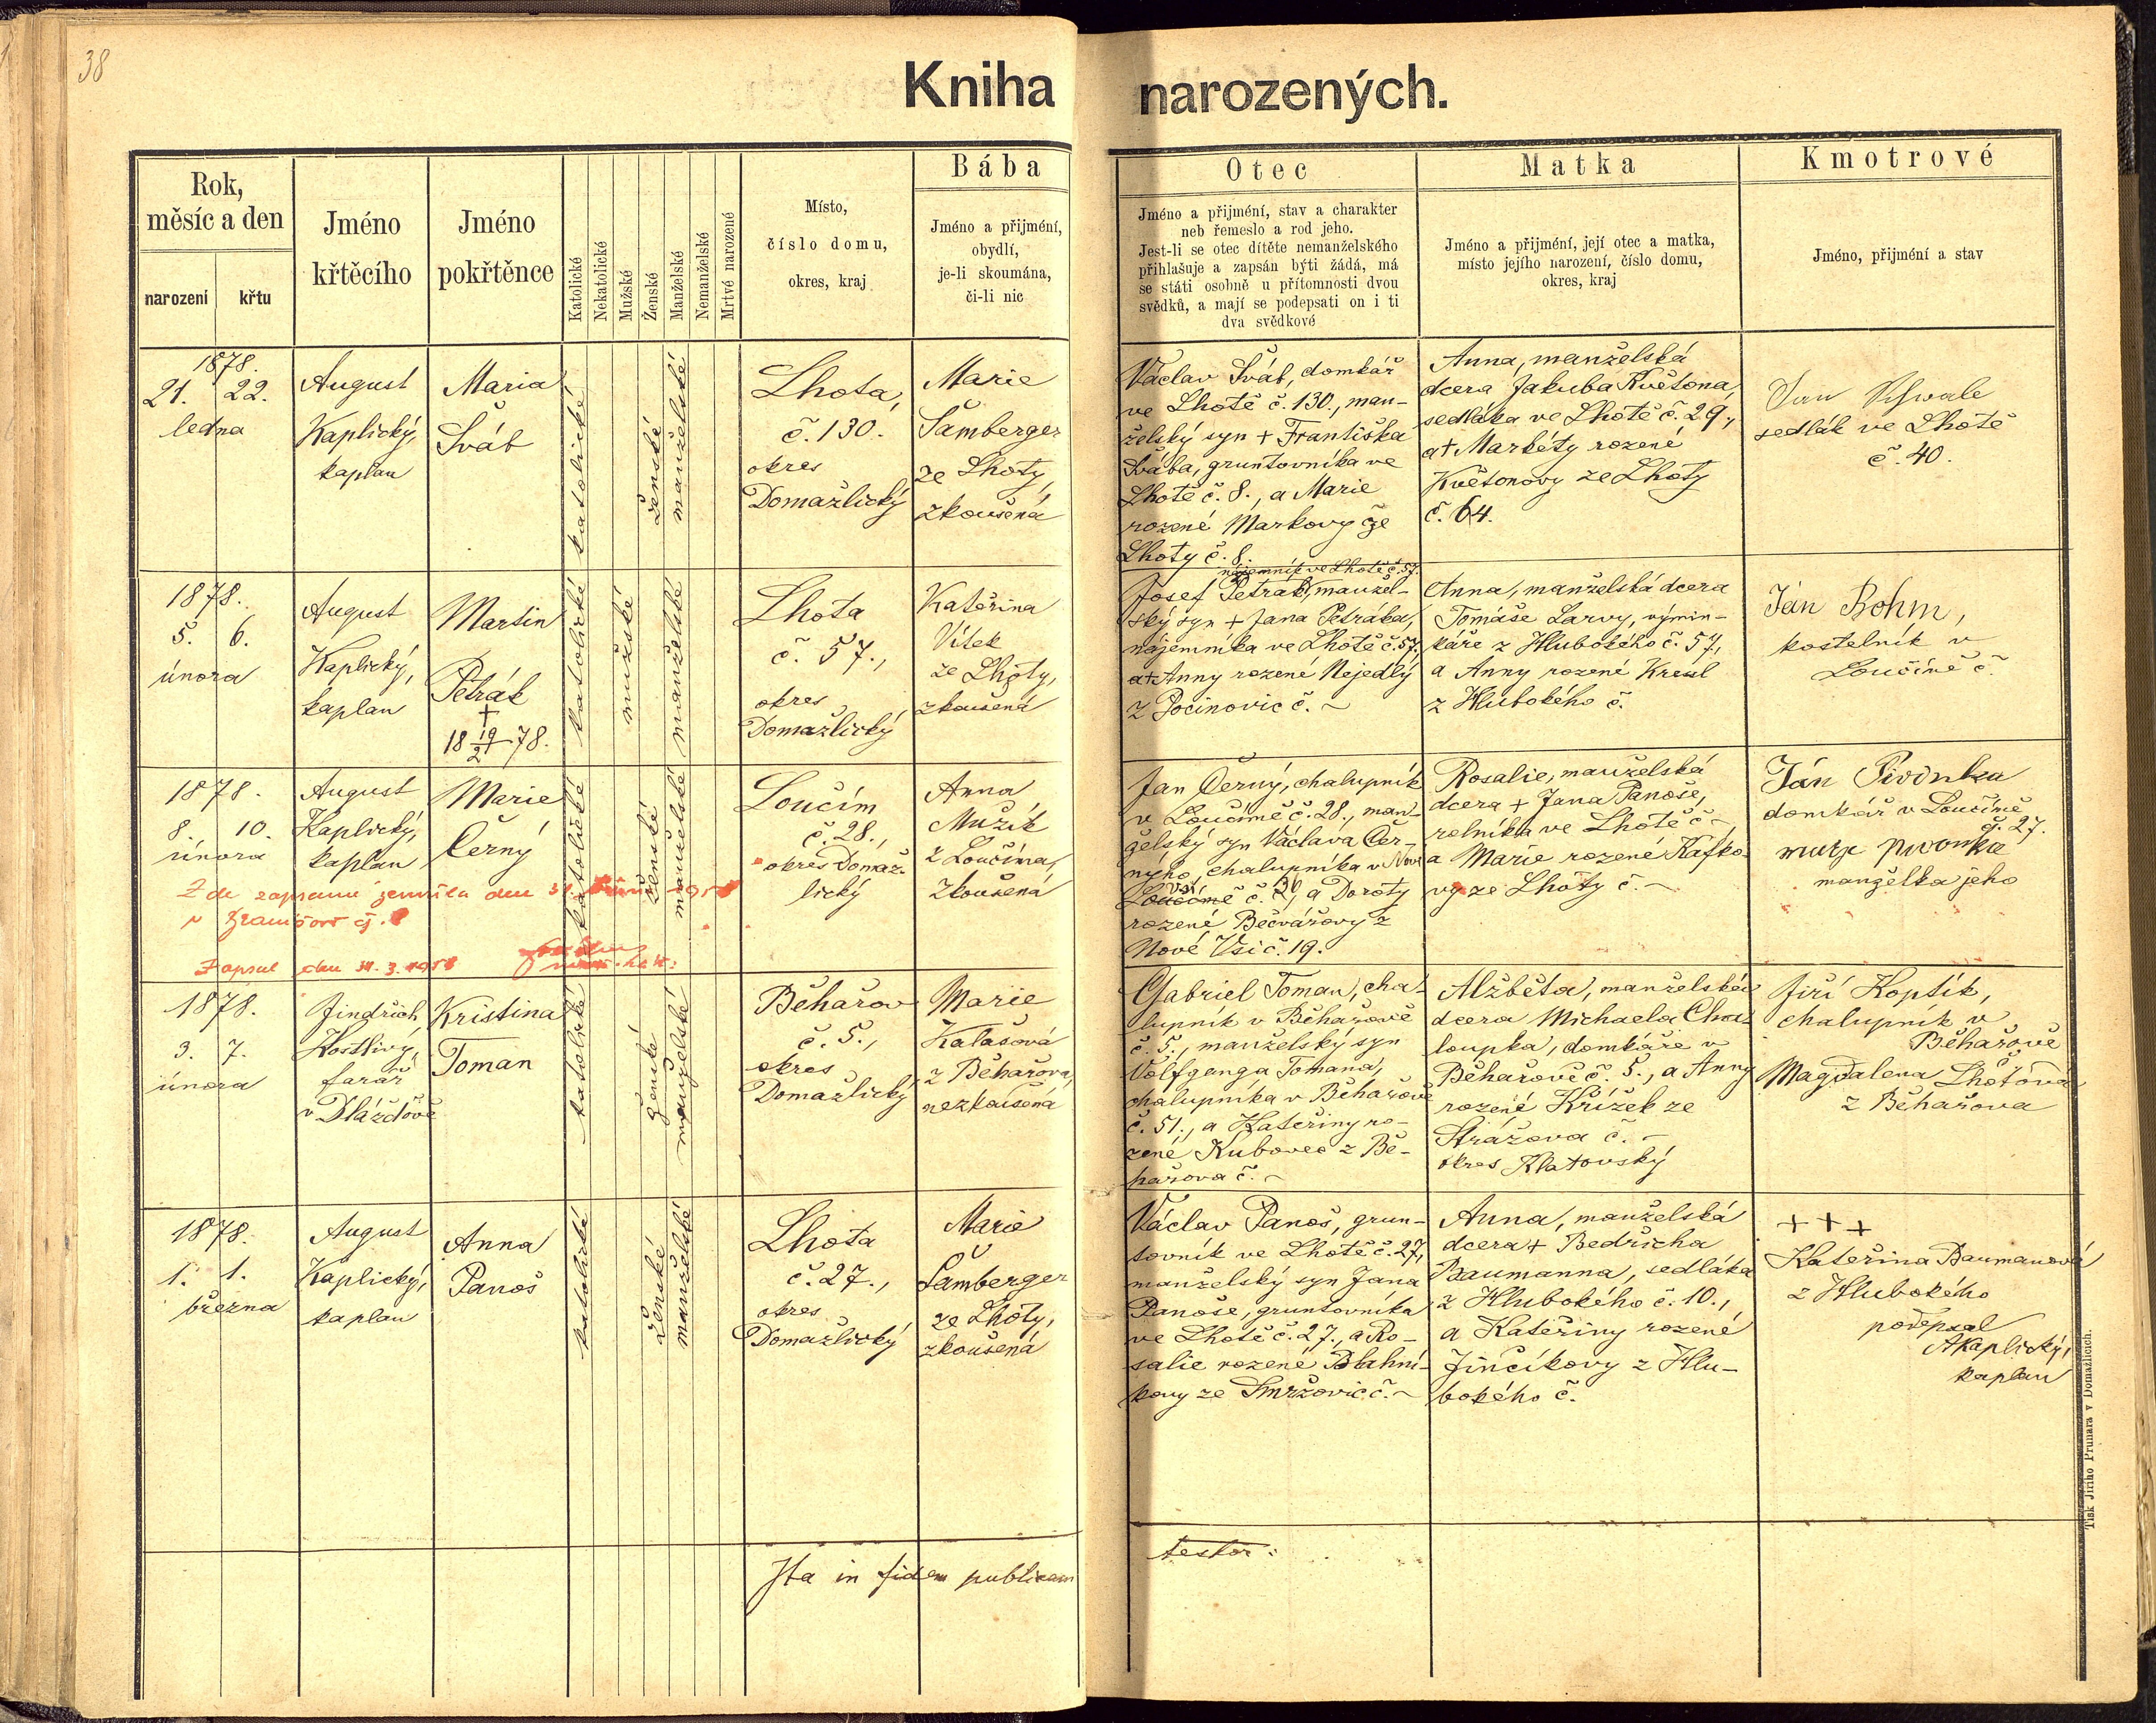 38
Kniha narozených.
Rok,
měsíc a den
narození
křtu
Jméno
křtěcího
Jméno
pokřtěnce
Katolické
Nekatolické
Mužské
Ženské
Manželské
Nemanželské
Mrtvé narozené
Místo,
číslo domu,
okres, kraj
Bába
Jméno a přijmení,
obydlí,
je-li skoumána,
či-li nic
Otec
Jméno a přijméní, stav a charakter
neb řemeslo a rod jeho.
Jest-li se otec dítěte nemanželského
přihlašuje a zapsán býti žádá, má
se státi osobně u přítomnosti dvou
svědků, a mají se podepsati on i ti
dva svědkové
Matka
Jméno a přijmení, její otec a matka,
místo jejího narození, číslo domu,
okres, kraj
Kmotrové
Jméno, přijmení a stav
1878.
21. 22.
ledna
August
Kaplický,
kaplan
Maria
Šváb
katolické
ženské
manželské
Lhota,
č. 130.
okres
Domažlický
Marie
Šamberger
ze Lhoty,
zkoušená
Václav Šváb, domkář
ve Lhotě č. 130., man-
želský syn + Františka
Švába, gruntovníka ve
Lhotě č. 8., a Marie
rozené Markovy ze
Lhoty č. 8.
Anna, manželská
dcera Jakuba Květona,
sedláka ve Lhotě č. 29.,
a + Markéty rozené
Květonovy ze Lhoty
č. 64.
Jan
sedlák ve Lhotě
č. 40.
1878.
5. 6.
února
August
Kaplický,
kaplan
Martin
Petrák
+
18 19/2 78.
katolické
mužské
manželské
Lhota
č. 57.,
okres
Domažlický
Kateřina
Vítek
ze Lhoty,
zkoušená
nájemník ve Lhotě č. 57.
Josef Petrák, manžel-
ský syn + Jana Petráka,
nájemníka ve Lhotě č. 57.,
a + Anny rozené Nejedlý
z Pocinovic č. ~
Anna, manželská dcera
Tomáše Larvy, výmin-
káře z Hlubokého č. 57,
a Anny rozené
z Hlubokého č.
Ján Bohm,
kostelník v
Loučimě č.
1878.
8. 10.
února
August
Kaplický,
kaplan
Marie
Černý
katolické
ženské
manželské
Loučim
č. 28.,
okres Domaž-
lický
Anna
Mužík
z Loučíma,
zkoušená
Jan Černý, chalupník
v Loučimě č. 28., man-
želský syn Václava Čer-
ného, chalupníka v Nové
Vsi
Loučimě č. 20, a Doroty
rozené Bečvářovy z
Nové Vsi č. 19.
Rosalie, manželská
dcera + Jana Panoše,
rolníka ve Lhotě č ~
a Marie rozené Kafko-
vy ze Lhoty č. ~
Ján Pivoňka
domkář v Loučimě
č. 27.
manželka jeho
Zde zapsaná zemřela dne 31.
Zapsal dne 31. 3. 1958
1878.
3. 7.
února
Jindřich
Kostlivý,
farář
v Dlažďově
Kristina
Toman
katolické
ženské
manželské
Běhařov
č. 5.,
okres
Domažlický
Marie
Kalašová
z Běhařova,
nezkoušená
Gabriel Toman, cha-
lupník v Běhařově
č. 5., manželský syn
Volfganga Tomana,
chalupníka v Běhařově
č. 51., a Kateřiny ro-
zené Kubovec z Bě-
hařova č. ~
Alžběta, manželská
dcera Michaela Cha-
loupka, domkáře v
Běhařově č. 5., a Anny
rozené Křížek ze
Strážova č. ~
okres Klatovský
Jiří Koptík,
chalupník v
Běhařově
Magdalena Lhotová
z Běhařova
1878.
1. 1.
března
August
Kaplický,
kaplan
Anna
Panoš
katolické
ženské
manželské
Lhota
č. 27.,
okres
Domažlický
Marie
Šamberger
ze Lhoty,
zkoušená
Václav Panoš, grun-
tovník ve Lhotě č. 27,
manželský syn Jana
Panoše, gruntovníka
ve Lhotě č. 27., a Ro-
salie rozené Blahní-
kovy ze Smržovic č. ~
Anna, manželská
dcera + Bedřicha
Baumanna, sedláka
z Hlubokého č. 10.,
a Kateřiny rozené
Jinčíkovy z Hlu-
bokého č.
+++
Kateřina Baumanová
z Hlubokého
podepsal
AKaplický,
kaplan
Ita in fidem publicam
testor:
Tisk Jiřího Prunara v Domažlicích.